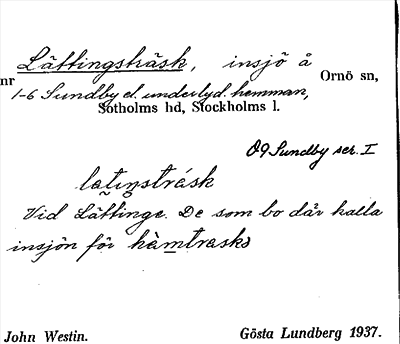 Lättingsträsk, insjö å
nr Ornö sn,
1-6 Sundby el. underlyd. hemman,
Sotholms hd, Stockholms l.
09 Sundby ser. I
latiŋstrásk
Vid Lättinge. De som bo där kalla
insjön för hàmtraskə
John Westin. Gösta Lundberg 1937.